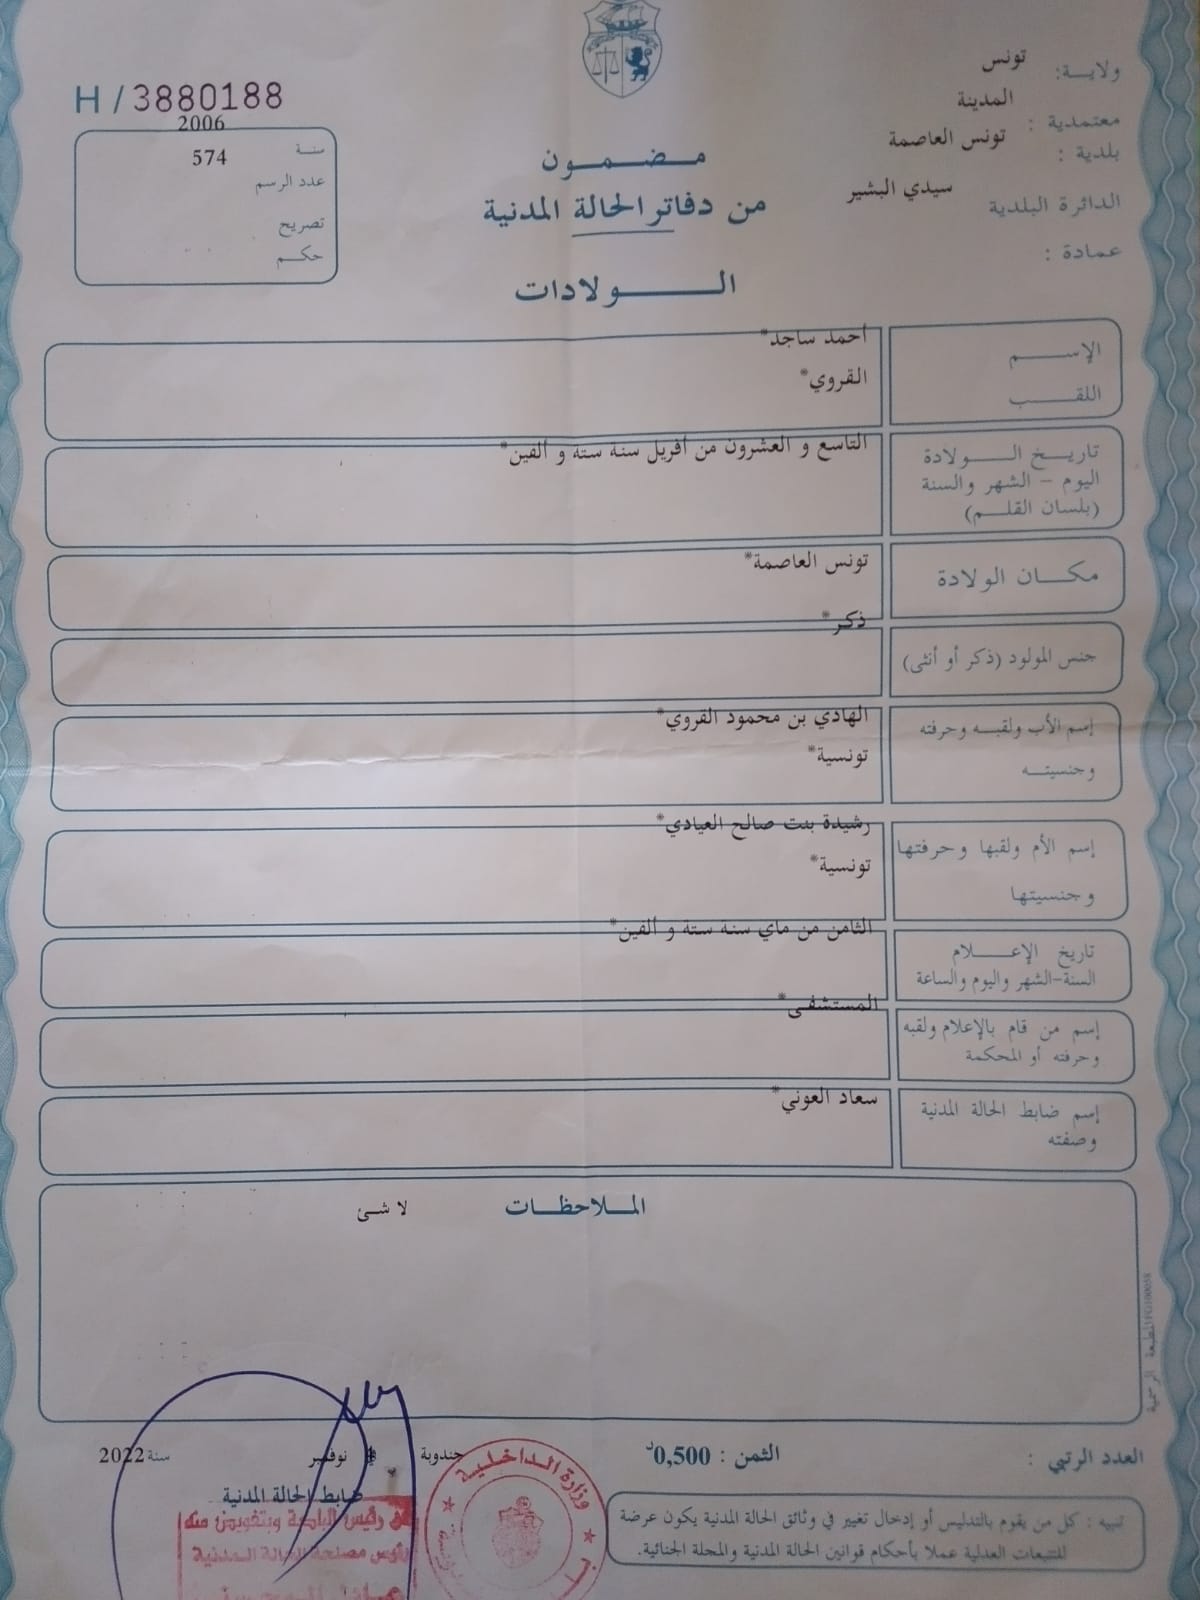 ولايـــة: تونس
معتمدية : المدينة
بلدية : تونس العاصمة
الدائرة البلدية سيدي البشير
عمادة :
H / 3880188
سنـة 2006
عدد الرسم 574
تصريح
حكـم
مـضـمـون
من دفاتر الحالة المدنية
الـــولادات
الإســـم أحمد ساجد*
اللقـــب القروي*
تاريـخ الـــولادة التاسع و العشرون من أفريل سنة ستة و ألفين*
اليوم - الشهر والسنة
(بلسان القلـم)
مكـان الولادة تونس العاصمة*
جنس المولود (ذكر أو أنثى) ذكر*
إسم الأب ولقبـه وحرفته الهادي بن محمود القروي*
وجنسيتـه تونسية*
إسم الأم ولقبها وحرفتها رشيدة بنت صالح العيادي*
وجنسيتها تونسية*
تاريخ الإعـــلام الثامن من ماي سنة ستة و ألفين*
السنة-الشهر واليوم والساعة
إسم من قام بالإعلام ولقبه المستشفى*
وحرفته أو المحكمة
إسم ضابط الحالة المدنية سعاد العوني*
وصفته
الملاحظـات لا شئ
المطبعة الرسمية
العدد الرتبي :
الثمن : 0,500د
جندوبة نوفمبر سنة 2022
ضابط الحالة المدنية
عن رئيس البلدية وبتفويض منه
رئيس مصلحة الحالة المدنية
وزارة الداخلية
تنبيه : كل من يقوم بالتدليس أو إدخال تغيير في وثائق الحالة المدنية يكون عرضة
للتتبعات العدلية عملا بأحكام قوانين الحالة المدنية والمجلة الجنائية.